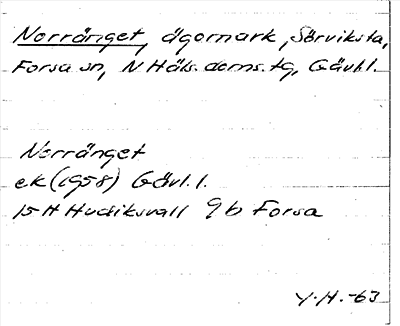 Norränget, ägomark, Sörviksta,
Forsa sn, N Häls. doms. tg, Gävl.l.
Norränget
ek (1958) Gävl. l.
15 H Hudiksvall 9b Forsa
Y.H.-63